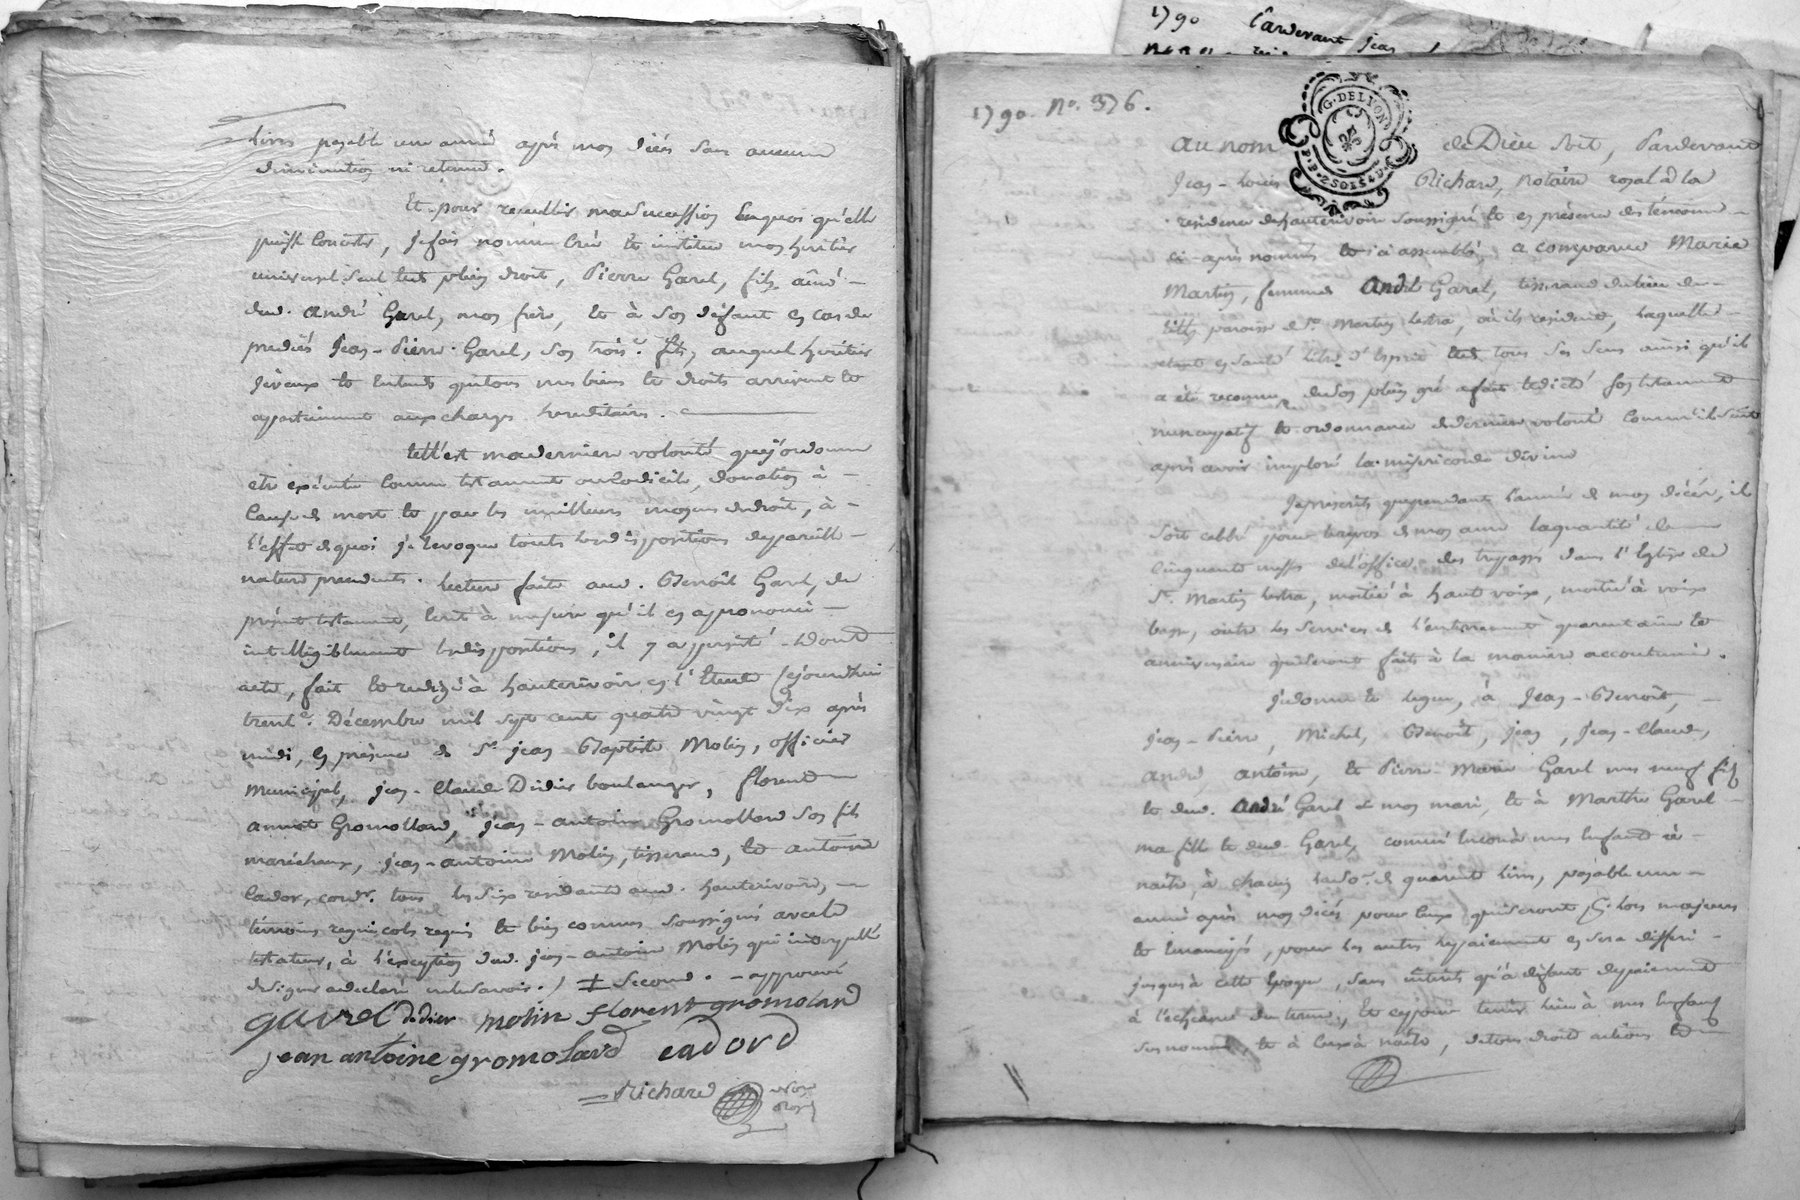 livres payable une année après mon décès sans aucune
diminution ni retenue.
Et pour recueillir ma succession en quoi qu'elle
puisse consister, je fais nomme crée et institue mon héritier
universel seul et de plein droit, Pierre Garel, fils aîné
dud. André Garel, mon frère, et à son défaut en cas de
prédécès Jean-Pierre Garel, son trois.e fils, auquel héritier
je veux et entends que tous mes biens et droits arrivent et
appartiennent aux charges héréditaires.
telle est ma dernière volonté que j'ordonne
être exécutée comme testament ou codicile, donation à
cause de mort et par les meilleurs moyens de droit, à
l'effet de quoi je révoque toutes les dispositions de pareille
nature précédentes. lecture faite aud. Benoît Garel, du
présent testament, écrit à mesure qu'il en a prononcé
intelligiblement les dispositions, il y a persisté. Dont
acte, fait et rédigé à hauterivoire en l'Etude cejourd'hui
trente Décembre mil sept cent quatre vingt dix après
midi, en présence de Sr. jean Baptiste Molin, officier
municipal, jean-Claude Didier boulanger, florent
annet Gromollard, jean-antoine Gromollard son fils
maréchaux, jean-antoine Molin, tisserand, et antoine
Cador, cord.r tous les six résidants aud. hauterivoire,
témoins requis et bien connus soussignés avec le
testateur, à l'exception dud. jean-antoine Molin qui interpellé
de signer a déclaré ne le savoir. / ‡ second. - approuvé
gavrel didier molin florent gromolard
jean antoine gromolard cadord
Richard
1790 Pardevant jean
1790. No. 376.
G. DE LYON
au nom de Dieu soit, Pardevant
Jean-Louis Richard, notaire royal à la
résidence de hauterivoire soussigné et en présence des témoins
ci-après nommés et ici assemblés, a comparue Marie
Martin, femme d'André Garel, tisserand du lieu de
paroisse de St. Martin lestra, où ils résident, laquelle
étant en santé libre d'esprit et de tous ses sens ainsi qu'il
a été reconnu, de son plein gré a fait et dicté son testament
nuncupatif et ordonnance de dernière volonté comme il suit
après avoir imploré la miséricorde divine
Je prescris que pendant l'année de mon décès, il
soit célébré pour le repos de mon ame la quantité de
cinquante messes de l'office des trépassés dans l'Eglise de
St. Martin lestra, moitié à haute voix, moitié à voix
basse, outre les services de l'enterrement quarantaine et
anniversaire qui seront faits à la manière accoutumée.
Je donne et legue, à Jean-Benoît,
Jean-Pierre, Michel, Benoît, Jean, Jean-Claude,
André, antoine, et Pierre-Marie Garel mes neuf fils
et dud. André Garel mon mari, et à Marthe Garel
ma fille et dud. Garel, comme encore à mes enfants à
naître, à chacun la so.e de quarante livres, payable une
année après mon décès pour ceux qui seront lors majeurs
et émancipés, pour les autres le paiement en sera différé
jusqu'à cette époque, sans intérêts qu'à défaut de paiement
à l'échéance du terme, et ce pour tenir lieu à mes enfants
susnommés, et à ceux à naître, de tous droits actions et